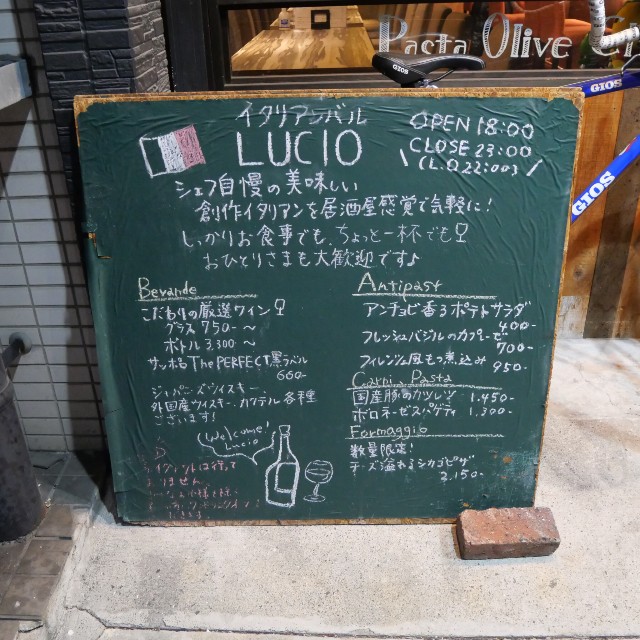 Pasta Olive
GIOS
GIOS
GIOS
イタリアンバル
LUCIO
OPEN 18:00
CLOSE 23:00
(L.O 22:00)
シェフ自慢の美味しい
創作イタリアンを居酒屋感覚で気軽に!
しっかりお食事でも、ちょっと一杯でも
おひとりさまも大歓迎です♪
Bevande
こだわりの厳選ワイン
グラス 750- 〜
ボトル 3,300 〜
サッポロ The PERFECT黒ラベル
660-
ジャパニーズウイスキー、
外国産ウイスキー、カクテル各種
ございます!
Welcome!
Lucio
Antipast
アンチョビ香るポテトサラダ
400-
フレッシュバジルのカプレーゼ
700-
フィレンツェ風もつ煮込み 950-
Carni Pasta
国産豚のカツレツ 1.450-
ボロネーゼスパゲティ 1.300-
Formaggio
数量限定!
チーズ溢れるシカゴピザ
2.150-